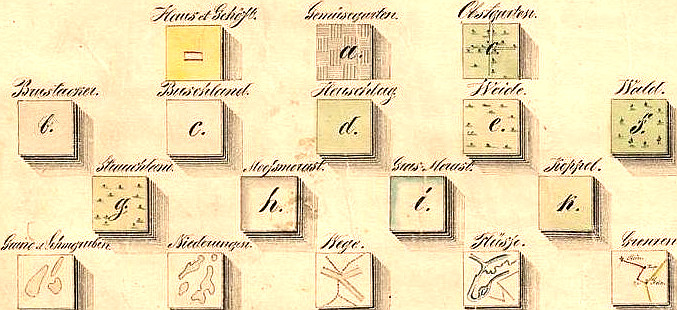 Haus et Gehöft. Gemüsegarten. Obstgarten.
a. c.
Brustacker. Buschland. Heuschlag. Weide. Wald.
b. c. d. e. f.
Strauchland. Moosmorast. Gras-Morast. Koppel.
g. h. i. k.
Niederungen. Wege. Flüsse. Grenzen